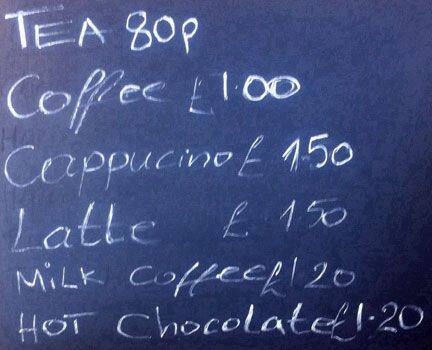 TEA 80p
Coffee £1.00
Cappucino £ 1.50
Latte £ 150
MiLK Coffee £120
HOT Chocolate £1.20